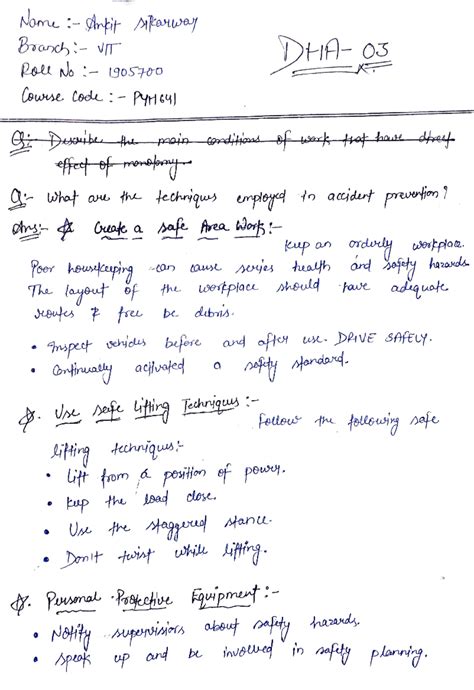 Name :- Ankit sikarway
Branch :- VIT
DHA-03
Roll No :- 1905700
Course Code :- PYH641
Q:- Describe the main conditions of work that have direct
effect of monotomy.
Q:- What are the techniques employed in accident prevention?
Ans:- Create a safe Area Work:-
Keep an orderly workplace.
Poor housekeeping can cause series health and safety hazards
The layout of the workplace should have adequate
routes & free be debris.
• Inspect vehicles before and after use. DRIVE SAFELY.
• Continually activated a safety standard.
Use safe Lifting Techniques :-
Follow the following safe
lifting techniques:-
• Lift from a position of power.
• Keep the load close.
• Use the staggered stance.
• Don't twist while lifting.
Personal Protective Equipment :-
• Notify supervisiors about safety hazards.
• Speak up and be involved in safety planning.